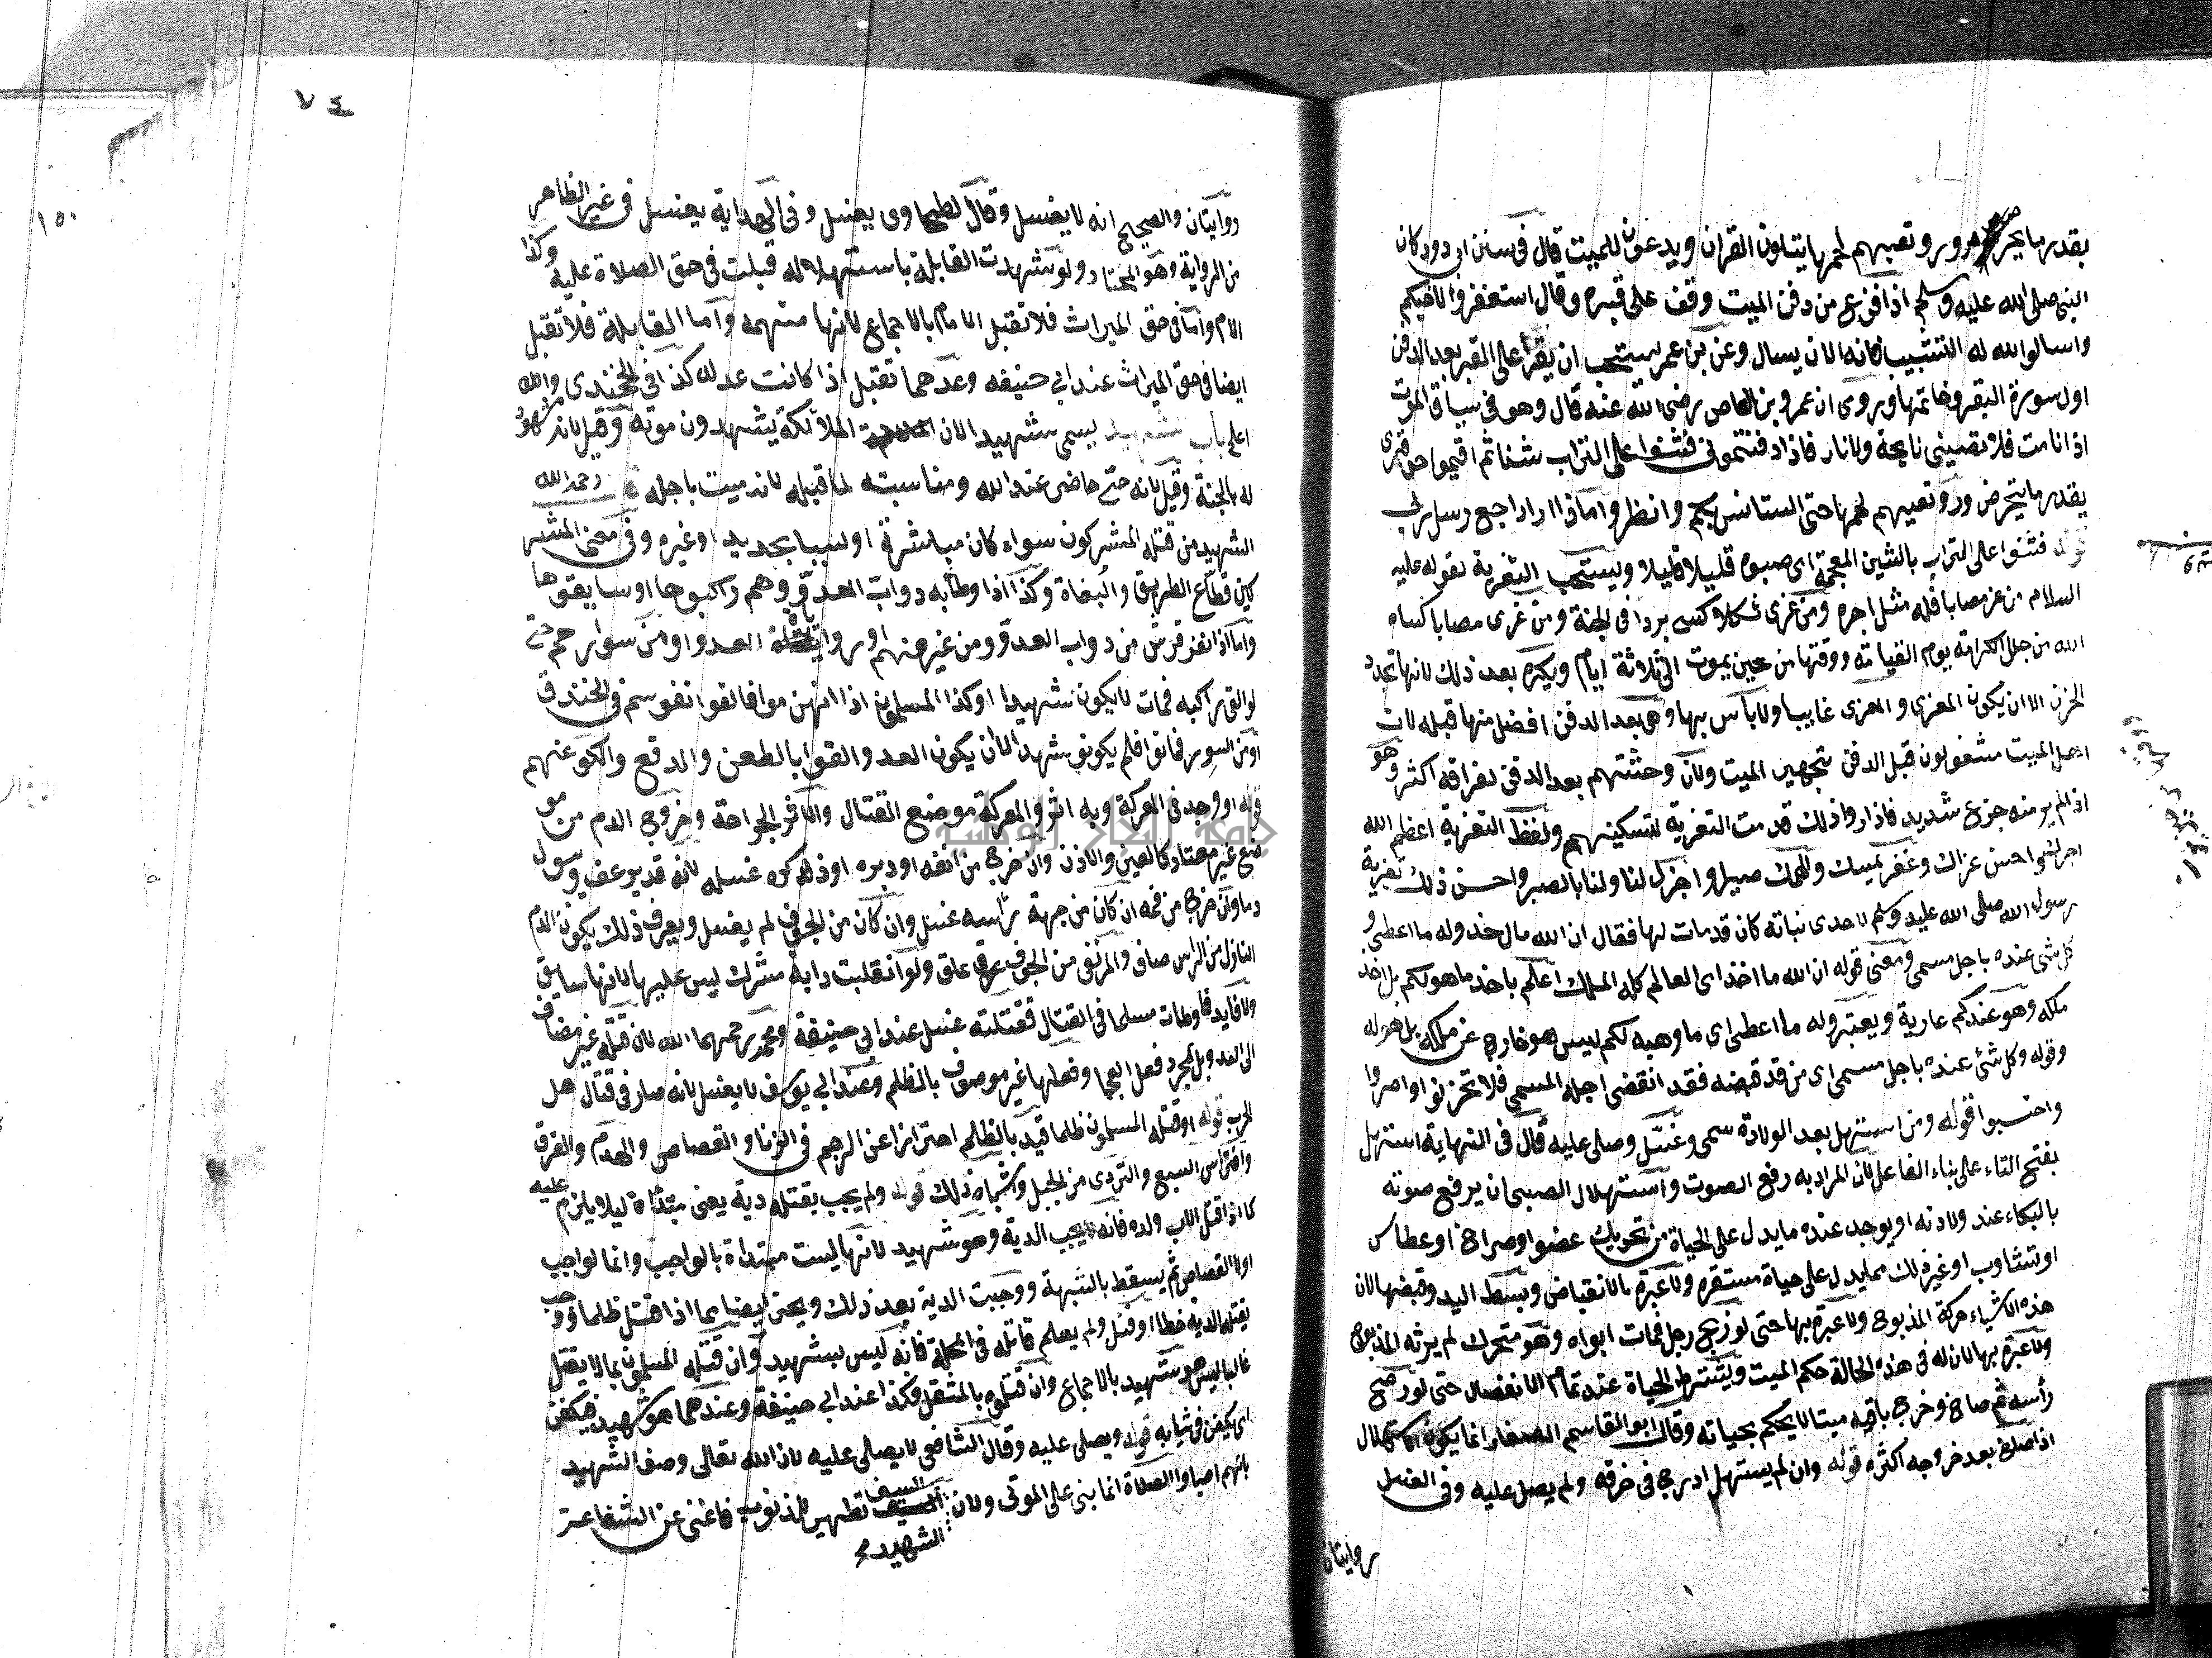 بقدر ما ينحر جزور وتعيهم لحمها يتلون القران ويدعون للميت قال في سنن ابي دود كان
النبي صلى الله عليه وسلم اذا فرغ من دفن الميت وقف على قبره وقال استغفروا لاخيكم
واسالوا الله له التثبيت فانه الان يسال وعن بن عمر يستحب ان يقرأ على القبر بعد الدفن
اول سورة البقر وخاتمها وروى ان عمرو بن العاص رضي الله عنه قال وهو في سياق الموت
اذا انا مت فلا تصبني نايحة ولا نار فاذا دفنتموني فشنوا على التراب شنا ثم اقيموا حول قبرى
بقدر ما ينحر جزور وتعيهم لحمها حتى استانس بكم وانظروا ماذا اراد اجع رسل ربي
قوله فشنوا على التراب بالشين المعجمة اى صبوه قليلا قليلا ويستحب التعزية لقوله عليه
السلام من عز مصابا فله مثل اجره ومن عزى ثكلا كسى بردا في الجنة ومن عزى مصابا كساه
الله من حلل الكرامة يوم القيامة ووقتها من حين يموت الى ثلاثة ايام ويكره بعد ذلك لانها تجدد
الحزن الا ان يكون المعزى والمعزى غايبا ولا بأس بها وهي بعد الدفن افضل منها قبله لان
اهل الميت مشغولون قبل الدفن بتجهيز الميت ولان وحشتهم بعد الدفن لفراقه اكثر وهو
اذا لم ير منه جزع شديد فاذا راو ذلك قدمت التعزية لتسكينهم ولفظ التعزية اعظم الله
اجرك واحسن عزاك وغفر لميتك والهمك صبرا واجزل لنا ولنا بالصبر واحسن ذلك تعزية
رسول الله صلى الله عليه وسلم لاحدى بناته كان قد مات لها فقال ان الله ما اخذ وله ما اعطى و
كل شئ عنده باجل مسمى ومعنى قوله ان الله ما اخذ اى العالم كله الملك اعلم باخذ ما هو لكم بل اخذ
ملكه وهو عندكم عارية ويعتبر وله ما اعطى اى ما وهبه لكم ليس هو خارج عن ملكه بل هو له
وقوله وكل شئ عنده باجل مسمى اى من قد قبضه فقد انقضى اجله المسمى فلا تحزنوا واصبروا
واحتسبوا قوله ومن استهل بعد الولادة سمى وغسل وصلى عليه قال في النهاية استهل
بفتح التاء على بناء الفاعل لان المراد به رفع الصوت واستهلال الصبي ان يرفع صوته
بالبكاء عند ولادته او يوجد عنده ما يدل على الحياة من تحريك عضو او صراخ او عطاس
او تثاوب او غير ذلك مما يدل على حياة مستقره ولا عبرة بالانقباض وبسط اليد وقبضها لان
هذه الاشياء حركة المذبوح ولا عبرة بها حتى لو ذبح رجل فمات ابوه وهو متحرك لم يرثه المذبوح
ولا عبرة بها لان له في هذه الحالة حكم الميت ويشترط الحياة عند تمام الانفصال حتى لو رضح
رأسه ثم صاح وخرج باقيه ميتا لا يحكم بحياته وقال ابو القاسم الصفار انما يكون الاستهلال
اذا صاح بعد خروجه اكثره قوله وان لم يستهل ادرج في خرقه ولم يصل عليه وفى الغسل
روايتان
٧٤
١٥٠
روايتان والصحيح انه لا يغسل وقال الطحاوى يغسل وفى الهداية يغسل في غير الظاهر
من الرواية وهو المختار ولو شهدت القابلة باستهلاله قبلت في حق الصلاة عليه وكذا
الام واما في حق الميراث فلا تقبل الامام بالاجماع لانها متهمه واما القابلة فلا تقبل
ايضا في حق الميراث عند ابي حنيفه وعندهما تقبل اذا كانت عدلة كذا في الخجندى والله
اعلم باب شهيد يسمى شهيدا لان الملائكة يشهدون موته وقيل لانه مشهود
له بالجنة وقيل لانه حي حاضر عند الله ومناسبته لما قبله لانه ميت باجله رحمه الله
الشهيد من قتله المشركون سواء كان مباشرة او سببا بحديد او غيره وفى معنى المشر
كين قطاع الطريق والبغاة وكذا اذا وطأبه دواب العدو وهم راكبوها او سايقوها
واما اذا نفر فرس من دواب العدو ومن غير منهم او راوا العدو او من سوادهم حتى
لو القى راكبه فمات لا يكون شهيدا وكذا المسلمون اذا انهزموا فالقوا نفوسهم في الخندق
او من السور فماتوا فلم يكونو شهدا الا ان يكون العدو القوا بالطعن والدفع والكو عنهم
قوله او وجد في المعركة وبه اثر والمعركة موضع القتال والاثر الجراحة وخروج الدم من مو
ضع غير معتاد كالعين والاذن وان خرج من انفه او دبره او ذكره غسله لانه قد يرعف ويبول
دما وان خرج من فمه ان كان من جهة رأسه غسل وان كان من الجوف لم يغسل ويعرف ذلك بكون الدم
النازل من الراس صاف والمرتقى من الجوف علق ولو انقلبت دابة مشرك ليس عليها لانها سايق
ولا قايد فاوطات مسلما في القتال فقتلته غسل عند ابي حنيفة ومحمد رحمهما الله لان قتله غير مضاف
الى العدو بل بمجرد فعل العجما وفعلها غير موصوف بالظلم وعند ابي يوسف لا يغسل لانه صار في قتال اهل
الحرب قوله او قتله المسلمون ظلما قيد بالظلم احترازا عن الرجم في الزنا والقصاص والهدم والغرق
وافتراس السبع والتردى من الجبل واشباه ذلك قوله ولم يجب بقتله دية يعنى مبتدأة ليلا يلزم عليه
كما اذا قتل الاب ولده فانه يجب الدية وهو شهيد لانها ليست مبتداة بالواجب وانما لواجب
اولا القصاص ثم يسقط بالشبهة ووجبت الدية بعد ذلك ويحتز ايضا عما اذا قتل ظلما ووجب
بقتله الدية خطا او قتل ولم يعلم قاتله في المحلة فانه ليس بشهيد وان قتله المسلمون بما لا يقتل
غالبا ليس هو شهيد بالاجماع وان قتلوه بالمثقل فكذا عند ابي حنيفة وعندهما هو شهيد فيكفن
اى يكفن في ثيابه قوله ويصلى عليه وقال الشافعي لا يصلى عليه لان الله تعالى وصف الشهيد
بانهم احياء والصلاة انما بنى على الموتى ولان السيف تطهير للذنوب فاغنى عن الشفاعة
الشهيد